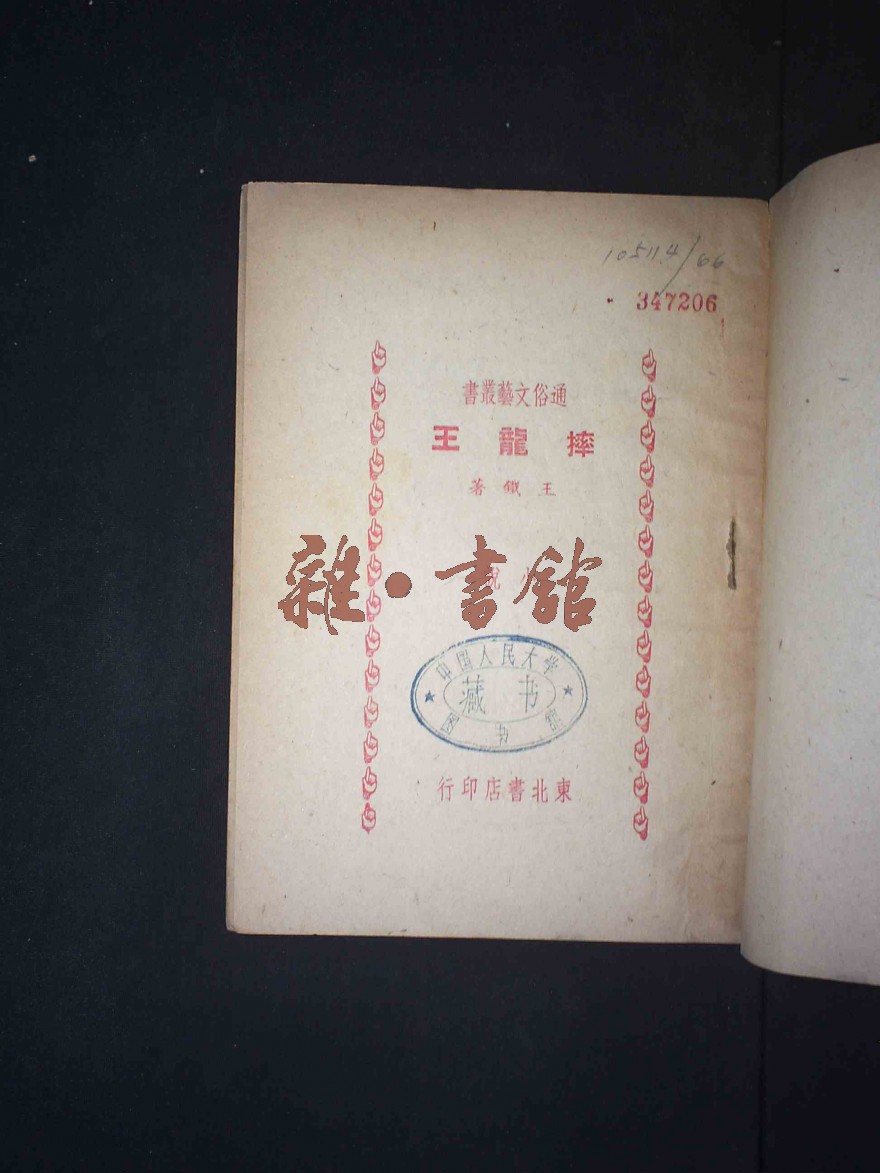 347206
通俗文藝叢書
摔龍王
王鐵著
雜·書館
中国人民大学
藏书
图书馆
東北書店印行